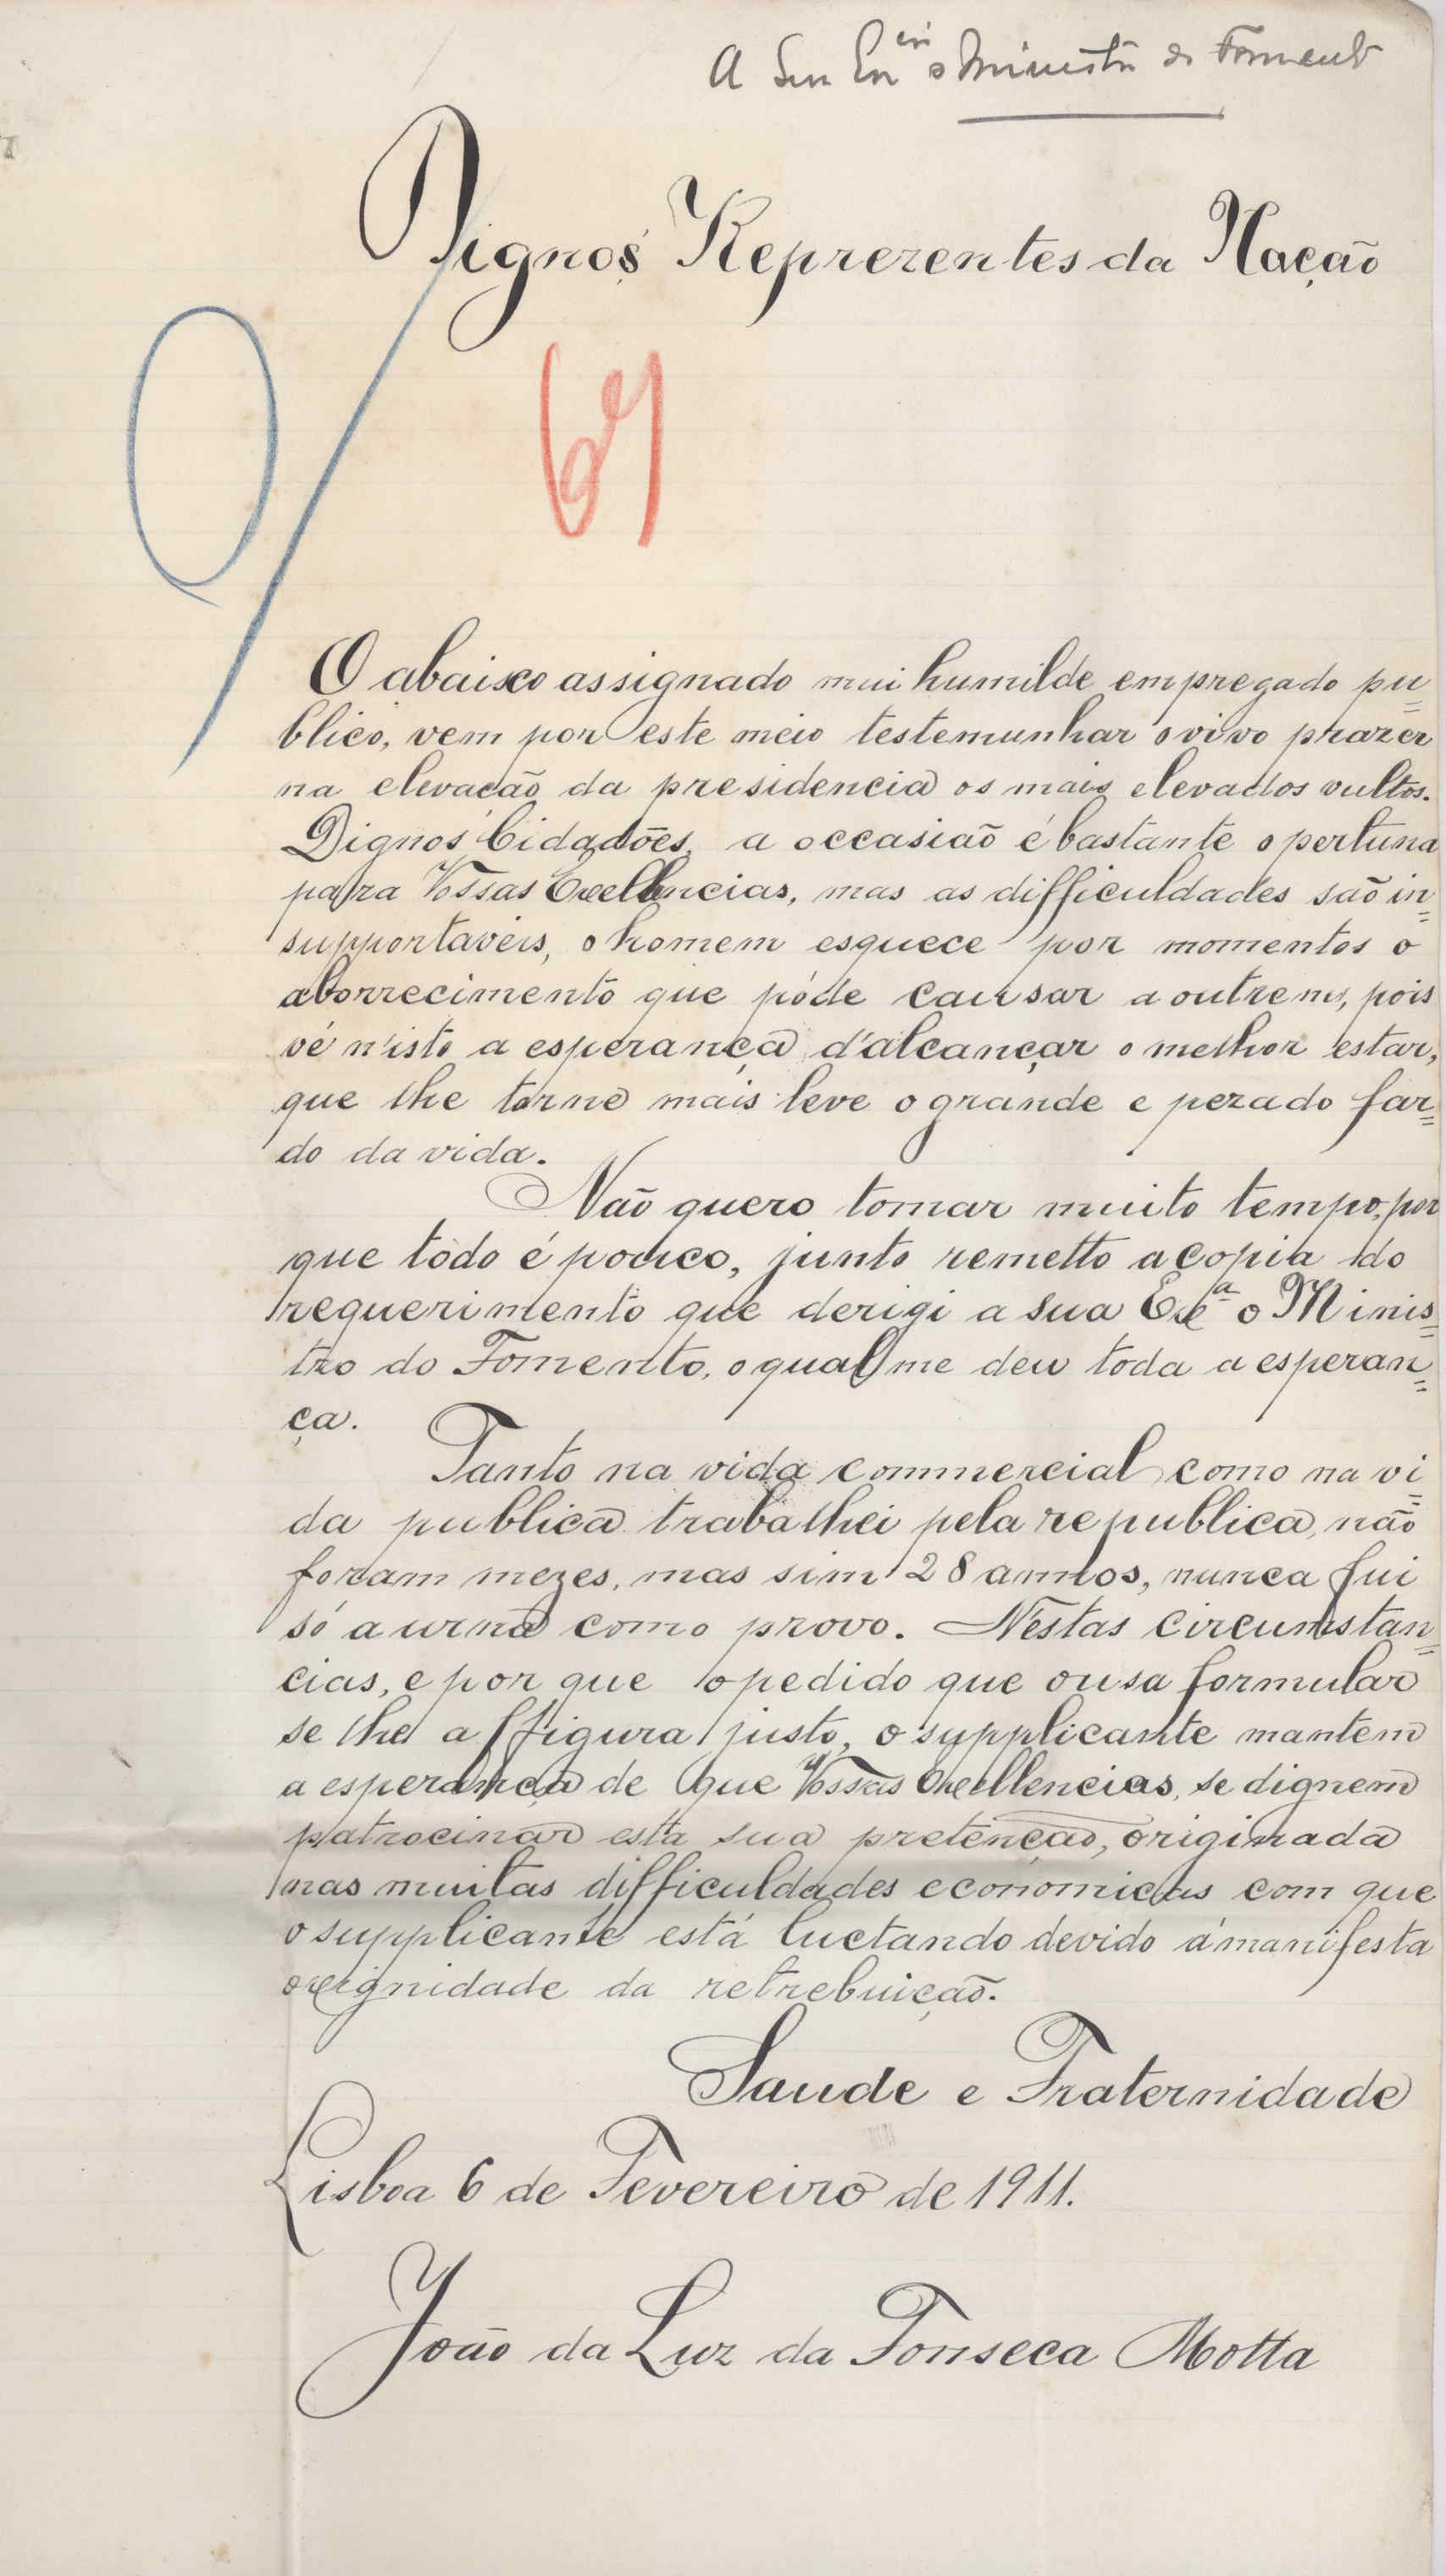 A Sua Ex.cia o Ministro do Fomento
Dignos Reprezentes da Nação
67
O abaixo assignado mui humilde empregado pu=
blico, vem por este meio testemunhar o vivo prazer
na elevacão da presidencia os mais elevados vultos.
Dignos Cidadões, a occasião é bastante opertuna
para Vossas Excellencias, mas as difficuldades são in=
supportaveis, o homem esquece por momentos o
aborrecimento que póde caursar a outrem, pois
vé n'isto a esperança d'alcançar o melhor estar,
que lhe torne mais leve o grande e pezado far=
do da vida.
Não quero tomar muito tempo, por
que todo é pouco, junto remetto a copia do
requerimento que derigi a sua Exª o Minis=
tro do Fomento, o qual me deu toda a esperan=
ça.
Tanto na vida commercial como na vi=
da publica trabalhei pela republica, não
foram mezes, mas sim 28 annos, nunca fui
só a urna como provo. Nestas circumstan=
cias, e por que o pedido que ousa formular
se lhe a ffigura justo, o supplicante mantem
a esperança de que Vossas Excellencias, se dignem
patrocinar esta sua pretenção, originada
nas muitas difficuldades economicas com que
o supplicante está luctando devido á manifesta
exignidade da retrebuição.
Saude e Fraternidade
Lisboa 6 de Fevereiro de 1911.
João da Luz da Fonseca Motta